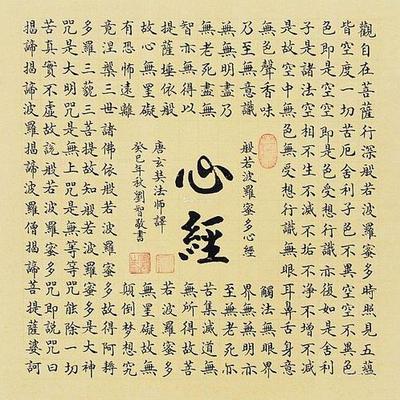 觀自在菩薩行深般若波羅蜜多時照見五蘊
皆空度一切苦厄舍利子色不異空空不異色
色即是空空即是色受想行識亦復如是舍利
子是諸法空相不生不滅不垢不淨不增不減
是故空中無色無受想行識無眼耳鼻舌身意
無色聲香味
觸法無眼界
乃至無意識
界無無明亦
無無明盡乃
至無老死亦
無老死盡無
苦集滅道無
智亦無得以
無所得故菩
提薩埵依般
若波羅蜜多
故心無罣礙
無罣礙故無
有恐怖遠離
顛倒夢想究
竟涅槃三世諸佛依般若波羅蜜多故得阿耨
多羅三藐三菩提故知般若波羅蜜多是大神
咒是大明咒是無上咒是無等等咒能除一切
苦真實不虛故說般若波羅蜜多咒即說咒曰
揭諦揭諦波羅揭諦波羅僧揭諦菩提薩婆訶
般若波羅蜜多心經
心經
唐玄奘法師譯
癸巳年秋劉敬書